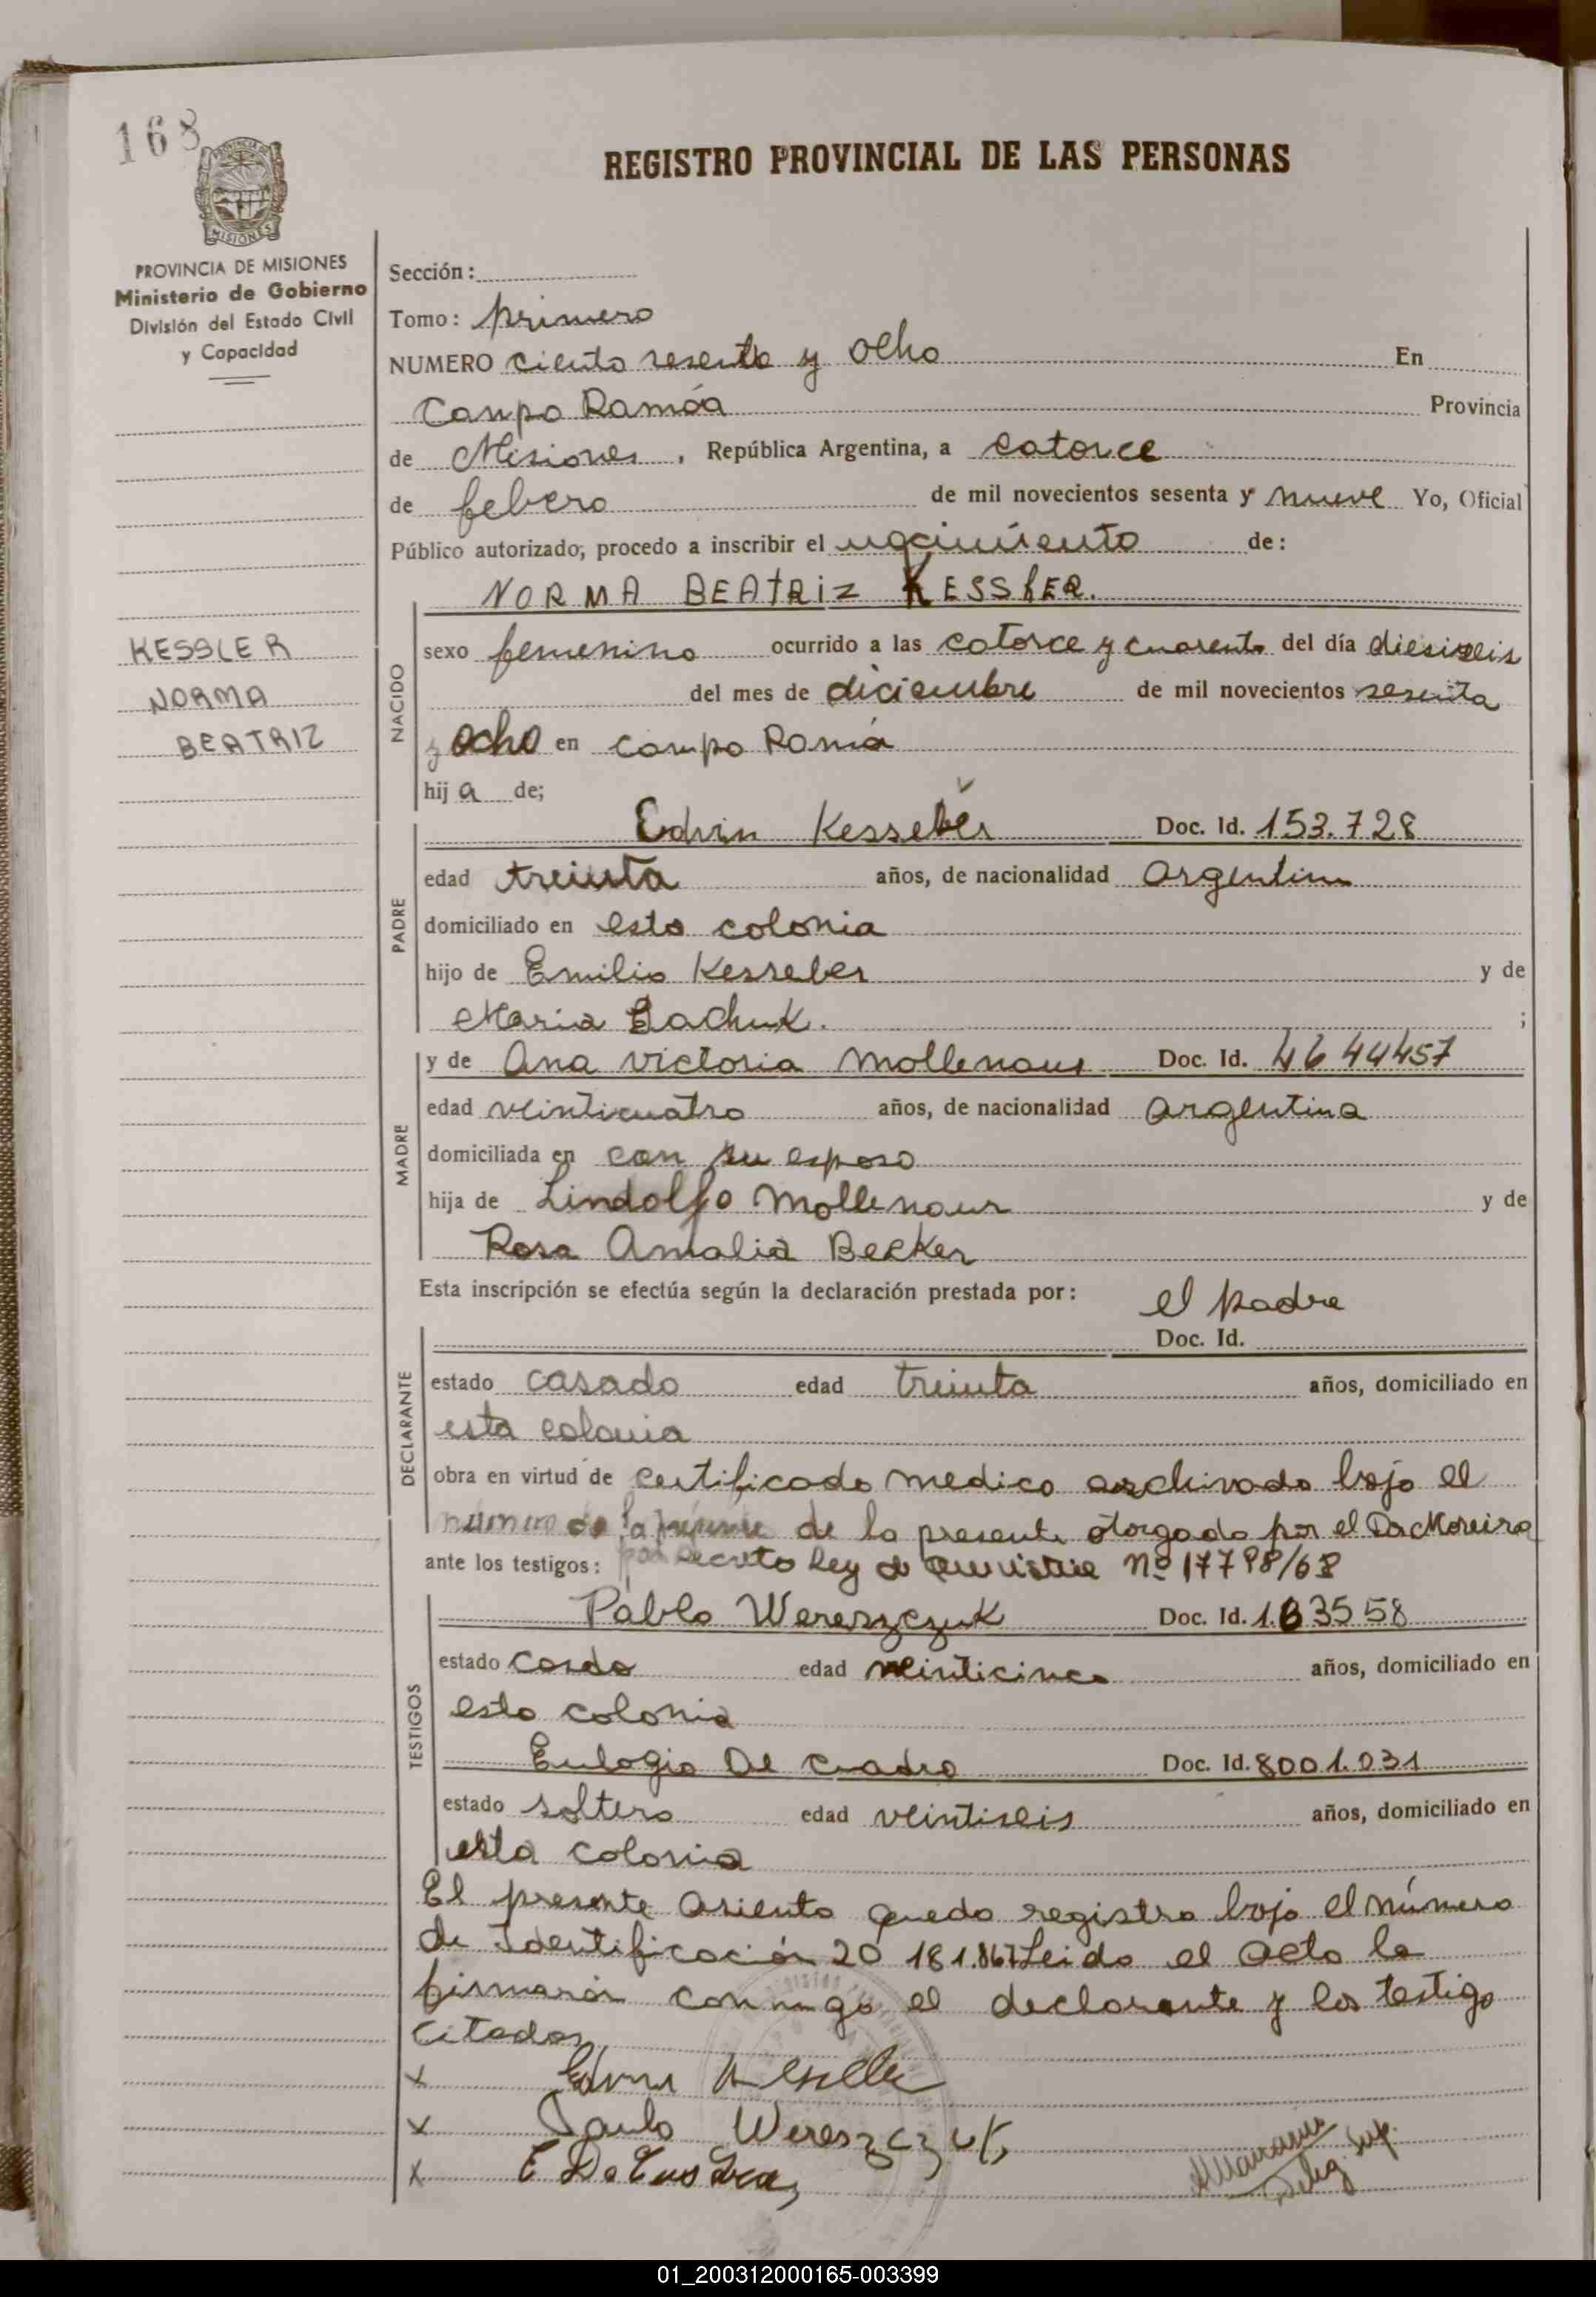 168
REGISTRO PROVINCIAL DE LAS PERSONAS
PROVINCIA DE MISIONES
MISIONES
PROVINCIA DE MISIONES
Ministerio de Gobierno
División del Estado Civil
y Capacidad
Sección:
Tomo: primero
NUMERO ciento sesenta y ocho En
Campo Ramóa Provincia
de Misiones, República Argentina, a catorce
de febero de mil novecientos sesenta y nueve Yo, Oficial
Público autorizado, procedo a inscribir el nacimiento de:
NORMA BEATRIZ KESSLER.
KESSLER
NORMA
BEATRIZ
NACIDO
sexo femenino ocurrido a las catorce y cuarenta del día diesiseis
del mes de diciembre de mil novecientos sesenta
y ocho en campo Romá
hija de;
PADRE
Edvin Kesseler Doc. Id. 153.728
edad treinta años, de nacionalidad argentina
domiciliado en esta colonia
hijo de Emilio Kesseler y de
Maria Bachuk. ;
MADRE
y de Ana victoria Mollenaur Doc. Id. 4644457
edad veinticuatro años, de nacionalidad argentina
domiciliada en con su esposo
hija de Lindolfo Mollenaur y de
Rosa Amalia Becker
Esta inscripción se efectúa según la declaración prestada por: el padre
Doc. Id.
DECLARANTE
estado casado edad treinta años, domiciliado en
esta colonia
obra en virtud de certificado medico archivado bajo el
numero de la de la presente otorgado por el Dr Moreira
ante los testigos: por decreto Ley de amnistia Nº 17798/68
TESTIGOS
Pablo Wereszczuk Doc. Id. 1.635558
estado casdo edad veinticinco años, domiciliado en
esta colonia
Eulogio De cuadro Doc. Id. 8001.031
estado soltero edad veintiseis años, domiciliado en
esta colonia
El presente asiento quedo registro bajo el número
de Identificación 20 181.867 Leido el acto la
firmarán conmigo el declarante y los testigo
citados
x Edvin Kesseller
x Paulo Wereszczuk
x E De Cuadra
Deleg. Sup.
01_200312000165-003399